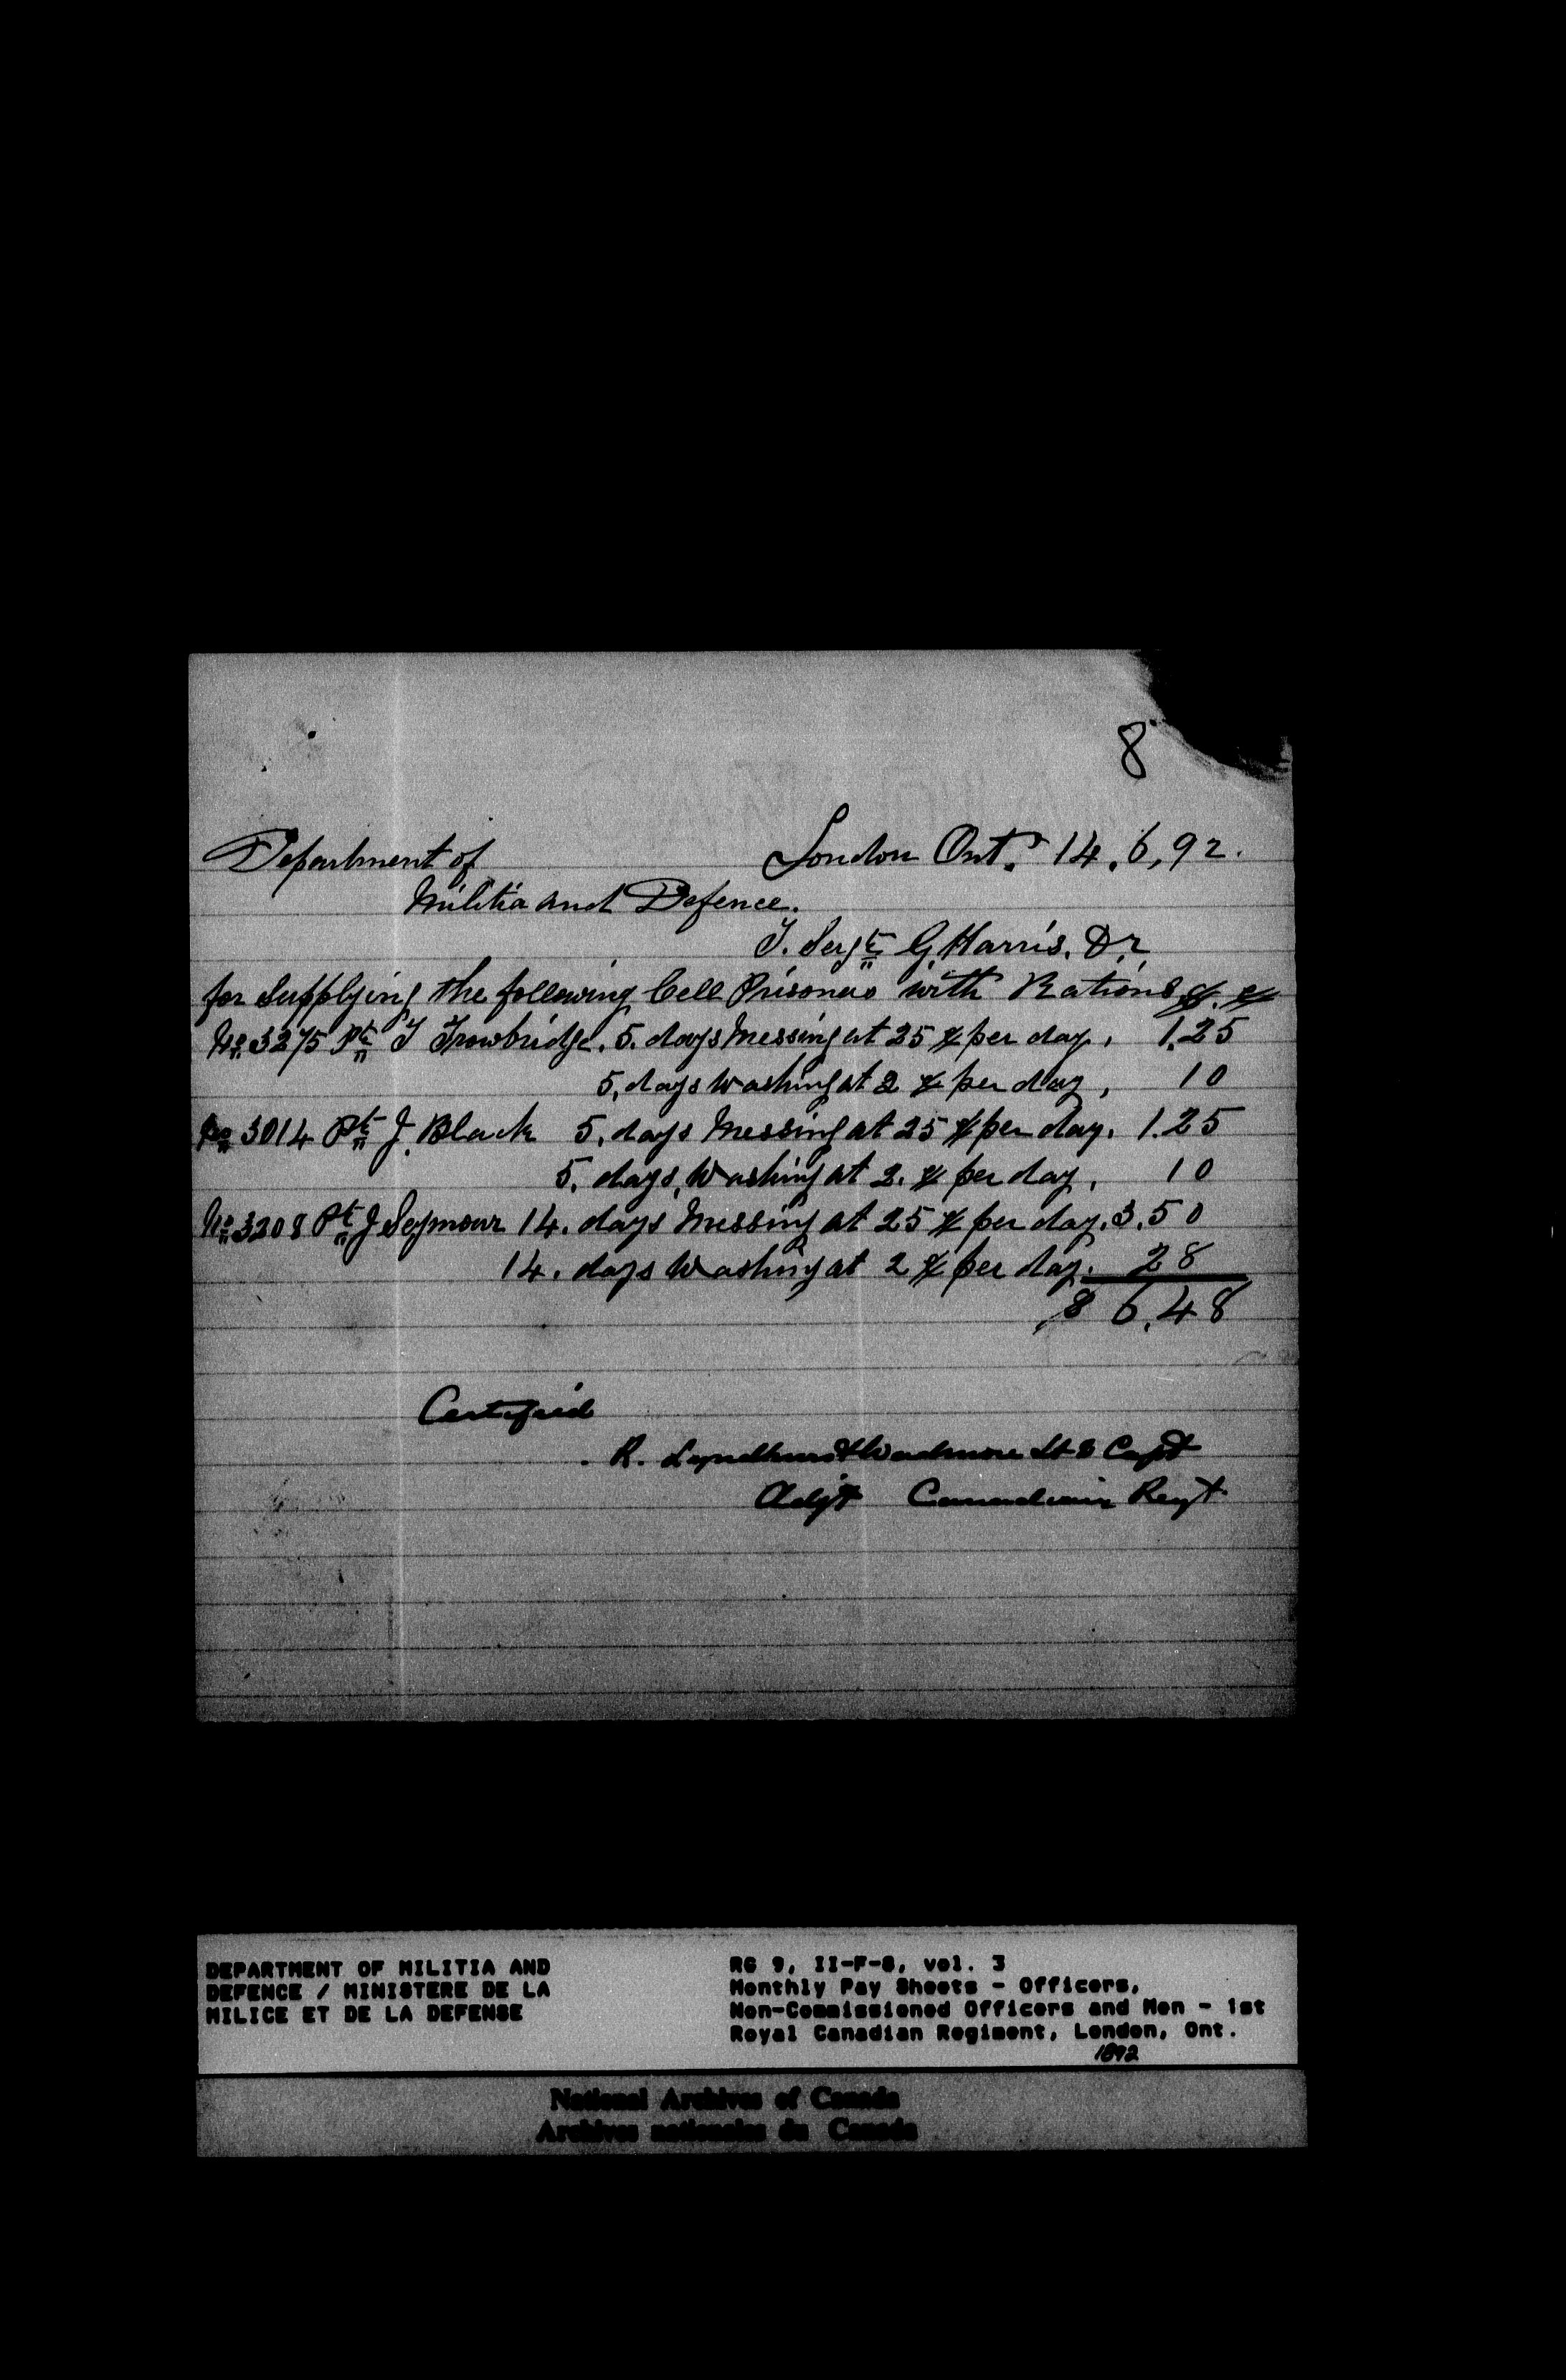 8
London Ont. 14.6.92.
Department of
Militia and Defence.
T. Sergt G. Harris. Dr
for Supplying the following Cell Prisoners with Rations $. ¢
No 3275 Pte T Trowbridge. 5. days Messing at 25 ¢ per day, 1.25
5, days Washing at 2 ¢ per day, 10
No 3014 Pte J. Black 5, days Messing at 25 ¢ per day. 1.25
5, days, Washing at 2. ¢ per day, 10
No 3208 Pte J Seymour 14. days Messing at 25 ¢ per day. 3.50
14. days Washing at 2 ¢ per day. 28
$ 6.48
Certified
R. Lyndhurst Wadmore Lt & Capt
Adjt Canadian Regt
DEPARTMENT OF MILITIA AND
DEFENCE / MINISTERE DE LA
MILICE ET DE LA DEFENSE
RG 9, II-F-8, vol. 3
Monthly Pay Sheets - Officers,
Non-Commissioned Officers and Men - 1st
Royal Canadian Regiment, London, Ont.
1892
National Archives of Canada
Archives nationales du Canada